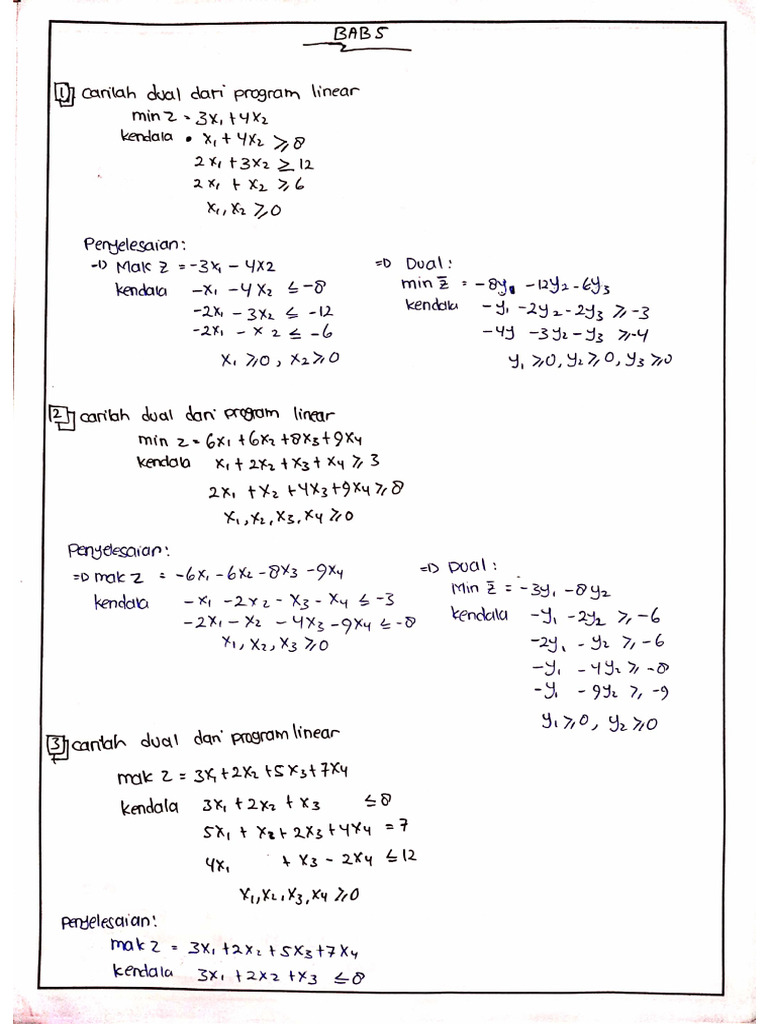 BAB 5
1 Carilah dual dari program linear
min z = 3x₁ + 4x₂
kendala • x₁ + 4x₂ ≥ 8
2x₁ + 3x₂ ≥ 12
2x₁ + x₂ ≥ 6
x₁, x₂ ≥ 0
Penyelesaian:
-1) Mak z = -3x₁ - 4x2
kendala -x₁ - 4x₂ ≤ -8
-2x₁ - 3x₂ ≤ -12
-2x₁ - x2 ≤ -6
x₁ ≥ 0, x₂ ≥ 0
=D Dual:
min z̄ = -8y₁ -12y₂ -6y₃
kendala -y₁ -2y₂ -2y₃ ≥ -3
-4y -3y₂ -y₃ ≥ -4
y₁ ≥ 0, y₂ ≥ 0, y₃ ≥ 0
2 carilah dual dari program linear
min z = 6x₁ + 6x₂ + 8x₃ + 9x₄
kendala x₁ + 2x₂ + x₃ + x₄ ≥ 3
2x₁ + x₂ + 4x₃ + 9x₄ ≥ 8
x₁, x₂, x₃, x₄ ≥ 0
Penyelesaian:
=D mak z = -6x₁ - 6x₂ - 8x₃ - 9x₄
kendala -x₁ - 2x₂ - x₃ - x₄ ≤ -3
-2x₁ - x₂ - 4x₃ - 9x₄ ≤ -8
x₁, x₂, x₃ ≥ 0
=D Dual:
Min z̄ = -3y₁ - 8y₂
kendala -y₁ -2y₂ ≥ -6
-2y₁ - y₂ ≥ -6
-y₁ - 4y₂ ≥ -8
-y₁ - 9y₂ ≥ -9
y₁ ≥ 0, y₂ ≥ 0
3 carilah dual dari program linear
mak z = 3x₁ + 2x₂ + 5x₃ + 7x₄
kendala 3x₁ + 2x₂ + x₃ ≤ 8
5x₁ + x₂ + 2x₃ + 4x₄ = 7
4x₁ + x₃ - 2x₄ ≤ 12
x₁, x₂, x₃, x₄ ≥ 0
Penyelesaian:
mak z = 3x₁ + 2x₂ + 5x₃ + 7x₄
kendala 3x₁ + 2x₂ + x₃ ≤ 8